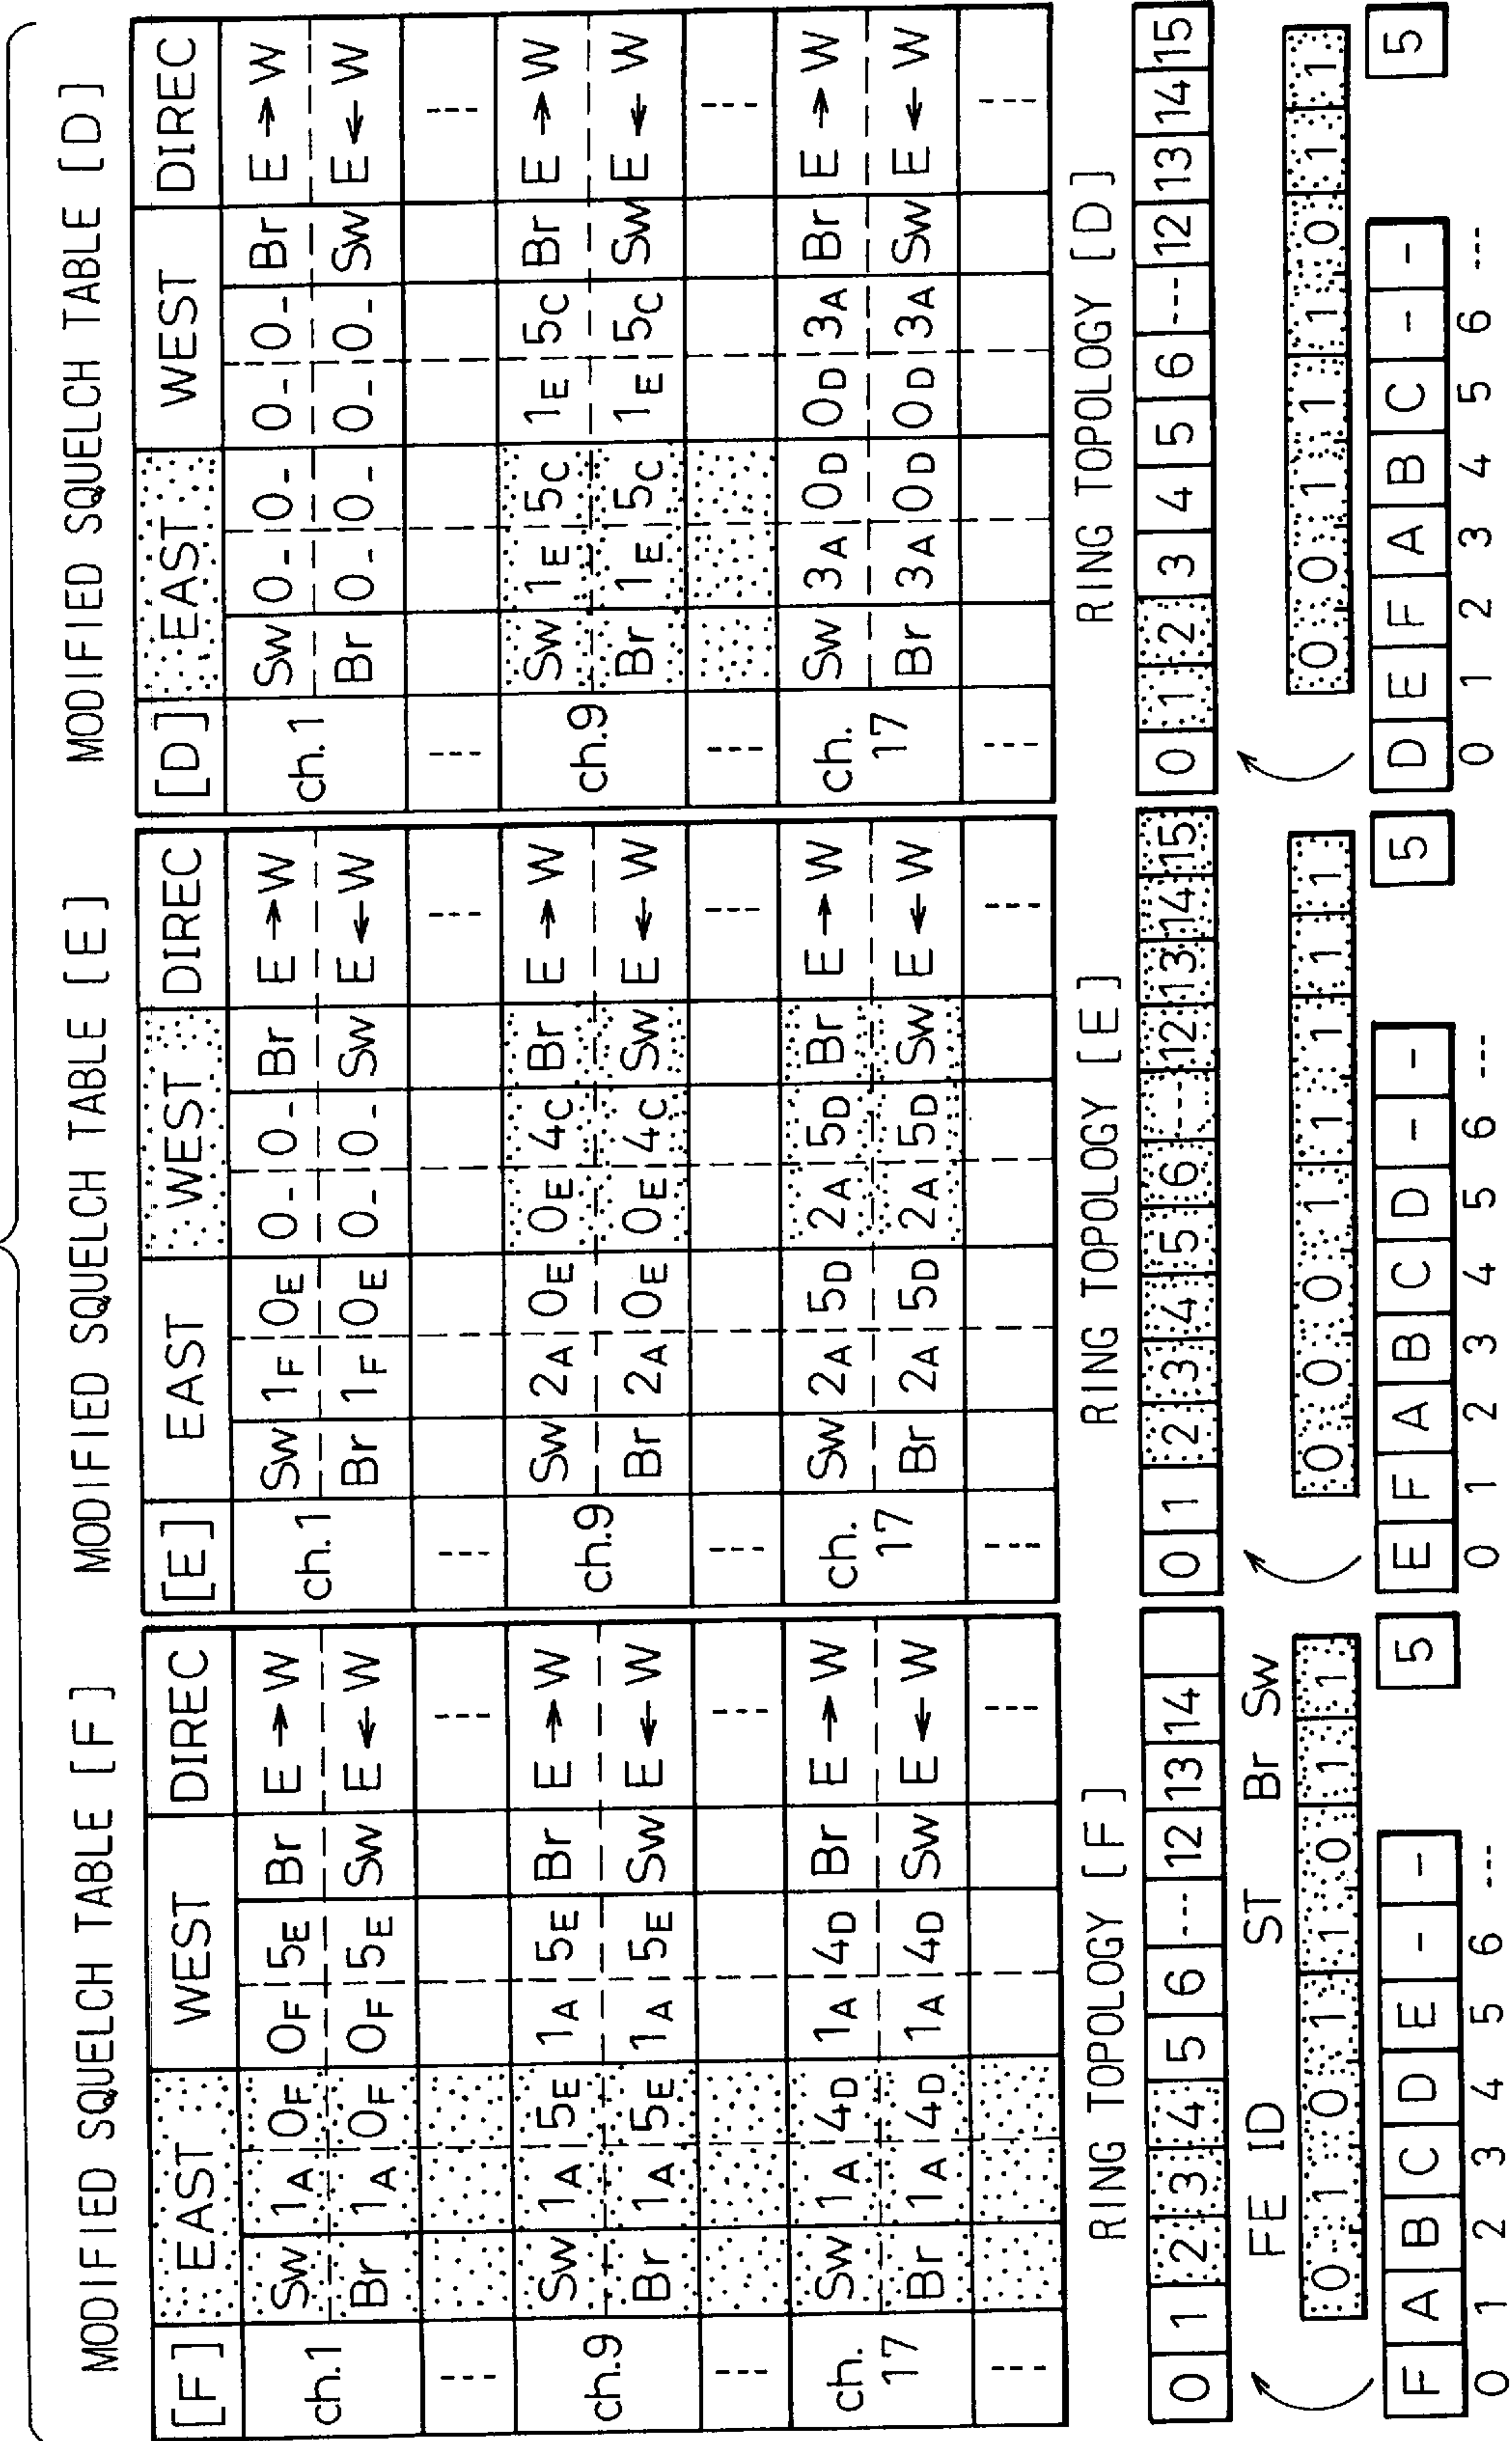 MODIFIED SQUELCH TABLE [F]
[F] EAST WEST DIREC
ch.1 Sw 1A 0F 0F 5E Br E→W
Br 1A 0F 0F 5E Sw E←W
--- ---
ch.9 Sw 1A 5E 1A 5E Br E→W
Br 1A 5E 1A 5E Sw E←W
--- ---
ch. 17 Sw 1A 4D 1A 4D Br E→W
Br 1A 4D 1A 4D Sw E←W
--- ---
RING TOPOLOGY [F]
0 1 2 3 4 5 6 --- 12 13 14
FE ID ST Br Sw
0 1 0 1 1 0 1 1
F A B C D E - - 5
0 1 2 3 4 5 6 ---
MODIFIED SQUELCH TABLE [E]
[E] EAST WEST DIREC
ch.1 Sw 1F 0E 0- 0- Br E→W
Br 1F 0E 0- 0- Sw E←W
--- ---
ch.9 Sw 2A 0E 0E 4C Br E→W
Br 2A 0E 0E 4C Sw E←W
--- ---
ch. 17 Sw 2A 5D 2A 5D Br E→W
Br 2A 5D 2A 5D Sw E←W
--- ---
RING TOPOLOGY [E]
0 1 2 3 4 5 6 --- 12 13 14 15
0 0 0 1 1 1 1 1
E F A B C D - - 5
0 1 2 3 4 5 6 ---
MODIFIED SQUELCH TABLE [D]
[D] EAST WEST DIREC
ch.1 Sw 0- 0- 0- 0- Br E→W
Br 0- 0- 0- 0- Sw E←W
--- ---
ch.9 Sw 1E 5C 1E 5C Br E→W
Br 1E 5C 1E 5C Sw E←W
--- ---
ch. 17 Sw 3A 0D 0D 3A Br E→W
Br 3A 0D 0D 3A Sw E←W
--- ---
RING TOPOLOGY [D]
0 1 2 3 4 5 6 --- 12 13 14 15
0 0 1 1 1 0 1 1
D E F A B C - - 5
0 1 2 3 4 5 6 ---